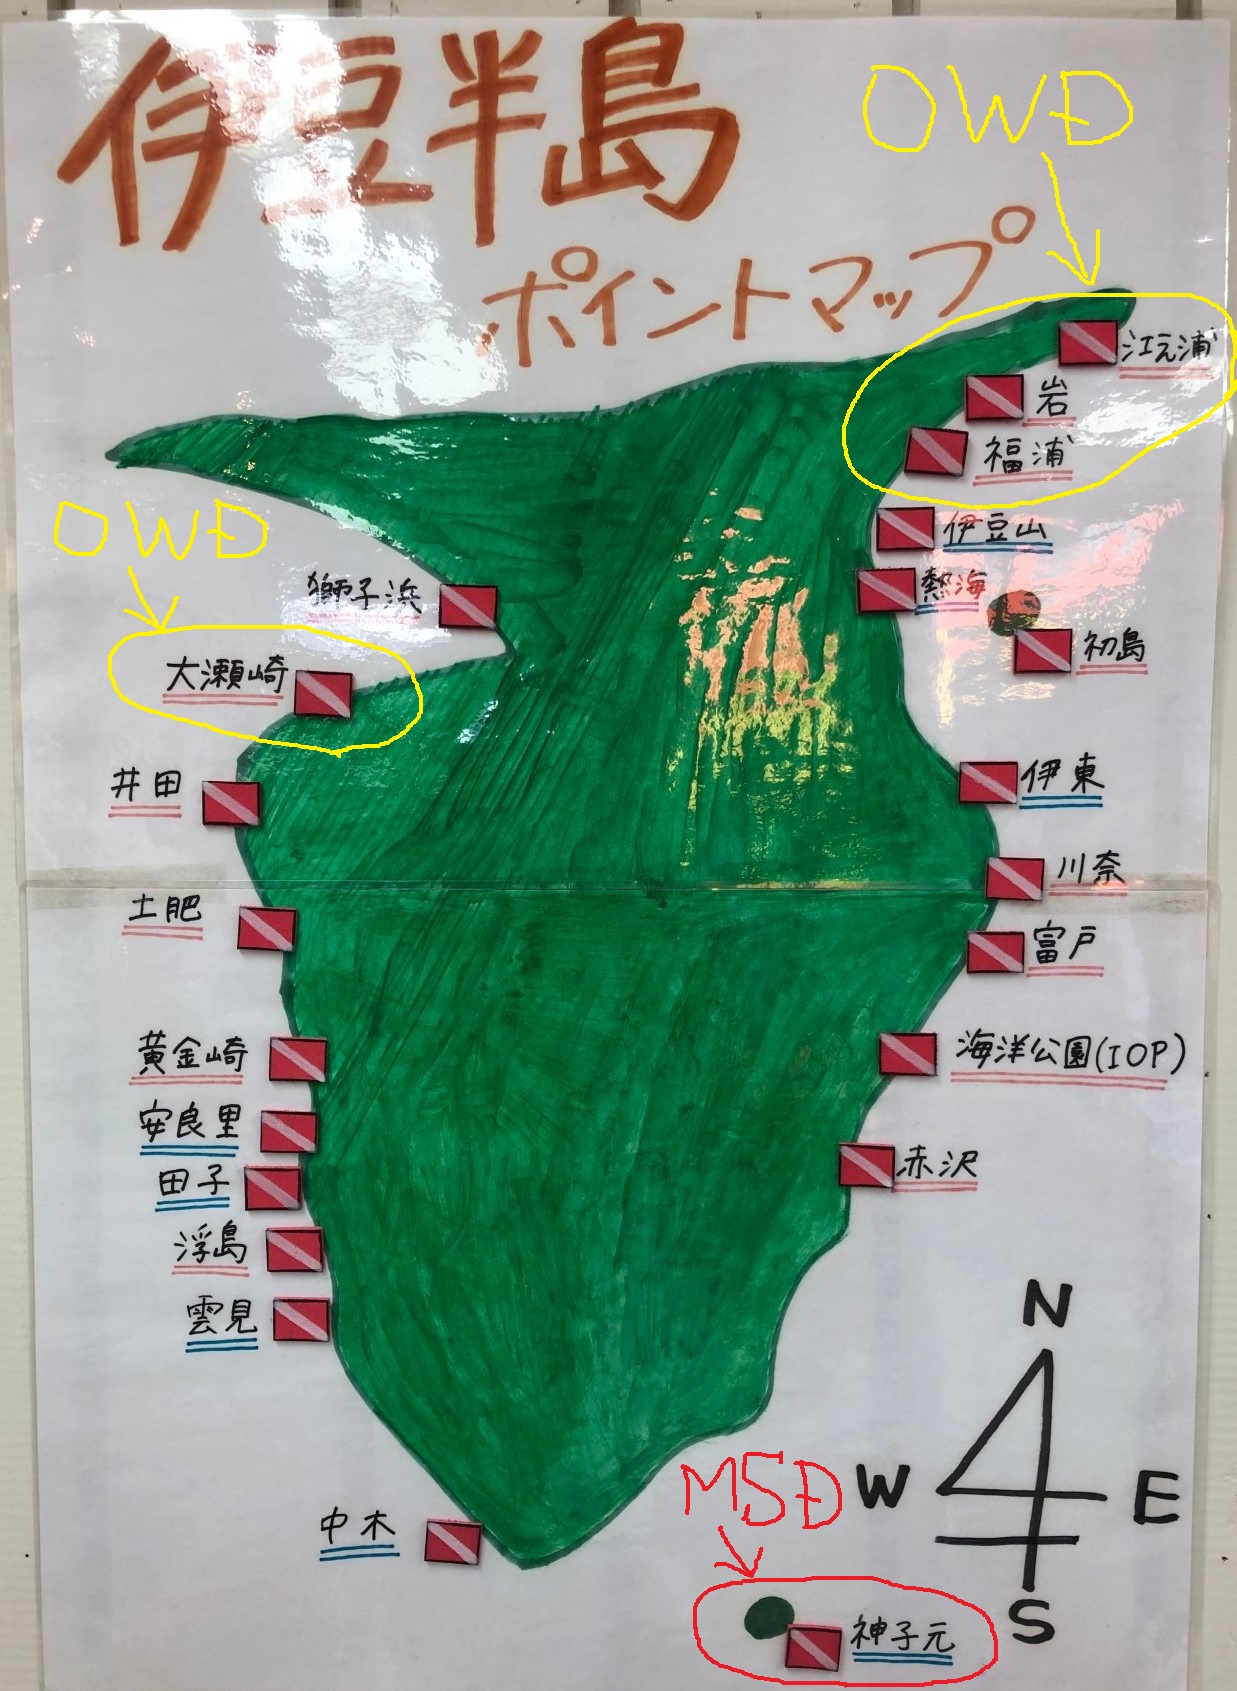 伊豆半島
OWD
ポイントマップ
江之浦
岩
福浦
OWD
伊豆山
獅子浜
熱海
初島
大瀬崎
井田
伊東
川奈
土肥
富戸
黄金崎
海洋公園(IOP)
安良里
田子
赤沢
浮島
雲見
N
MSD
W
E
中木
S
神子元